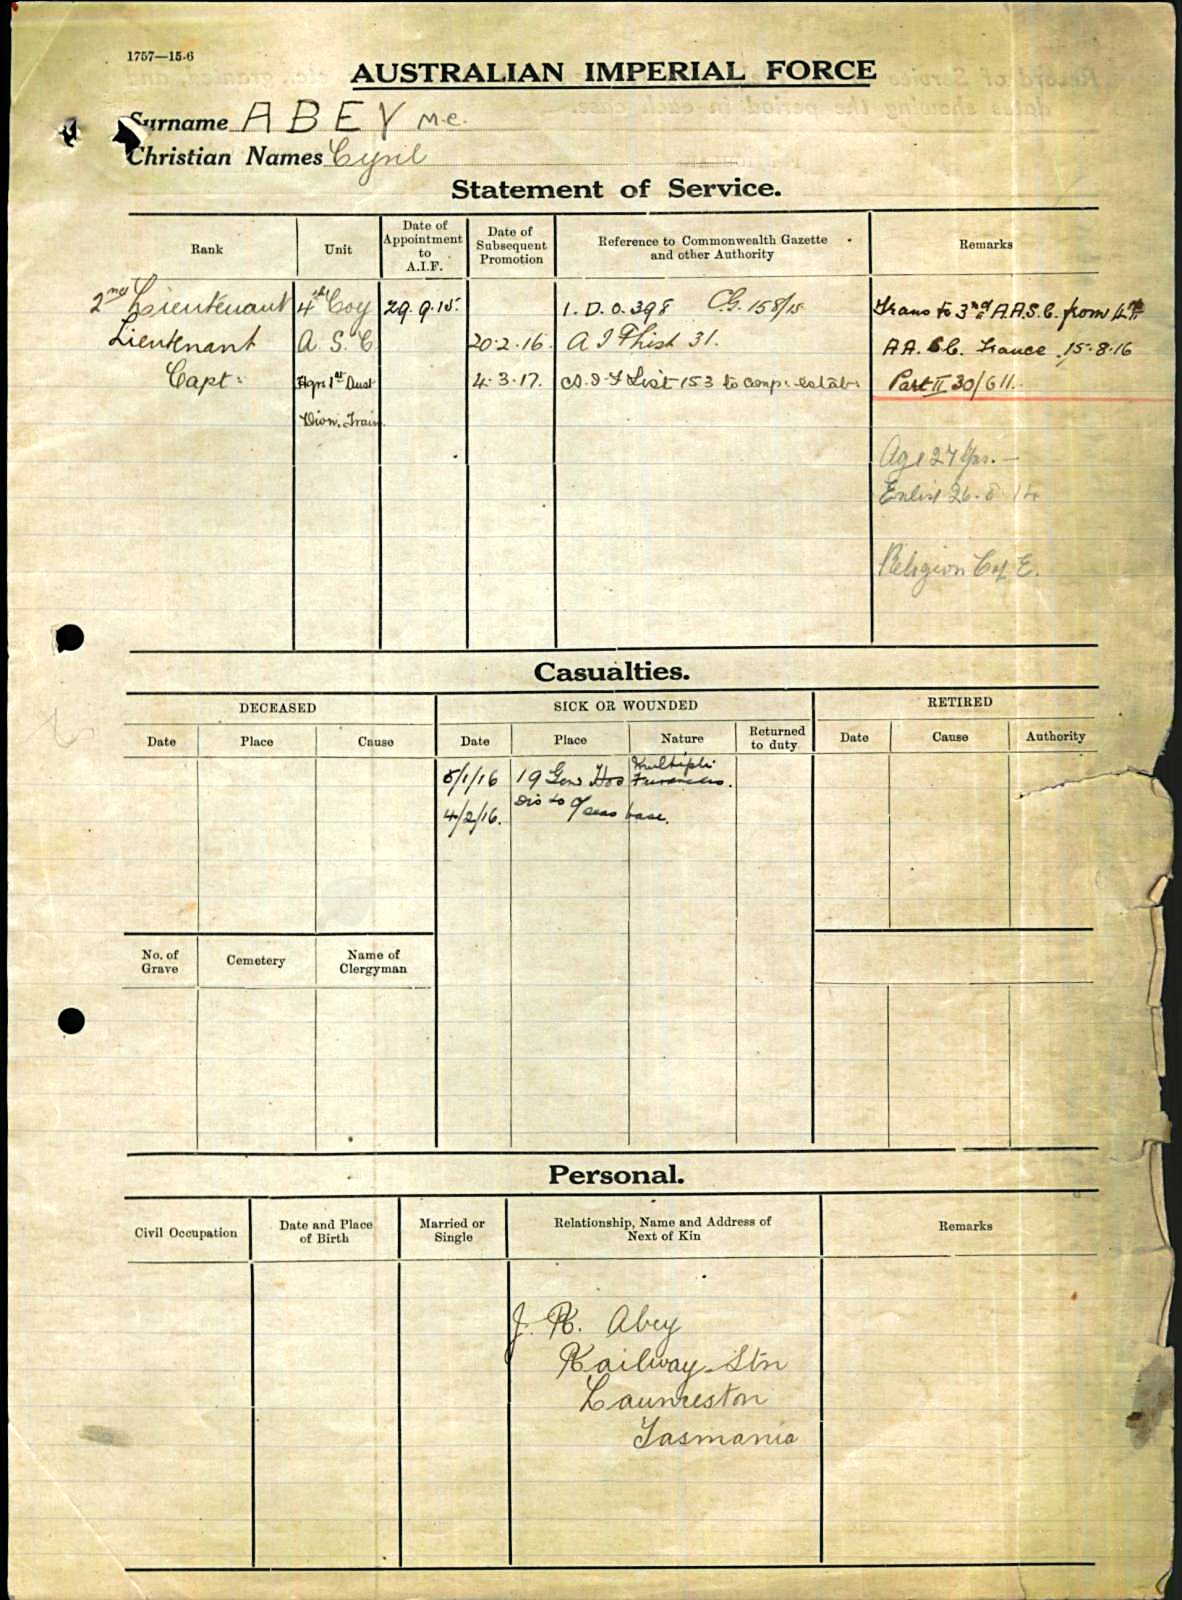 1757—15.6
AUSTRALIAN IMPERIAL FORCE
Surname ABEY M.C.
Christian Names Cyril
Statement of Service.
Rank
Unit
Date of Appointment to A.I.F.
Date of Subsequent Promotion
Reference to Commonwealth Gazette and other Authority
Remarks
2nd Lieutenant 4th Coy 29.9.15. 1. D.O. 398 C.G. 158/15 Trans to 3rd A.A.S.C. from 4th
Lieutenant A.S.C. 20.2.16. A I F List 31. A.A.S.C. France 15.8.16
Capt: Hqrs 1st Aust 4.3.17. A.I.F List 153 to comp. estab: Part II 30/611.
Divn. Train.
Age 27 Yrs. —
Enlist 26.8.14
Religion C of E.
Casualties.
DECEASED
SICK OR WOUNDED
RETIRED
Date Place Cause Date Place Nature Returned to duty Date Cause Authority
5/1/16 19 Gen Hos Multiple Furuncles.
4/2/16. Dis to O/seas base.
No. of Grave
Cemetery
Name of Clergyman
Personal.
Civil Occupation
Date and Place of Birth
Married or Single
Relationship, Name and Address of Next of Kin
Remarks
J. R. Abey
Railway Stn
Launceston
Tasmania